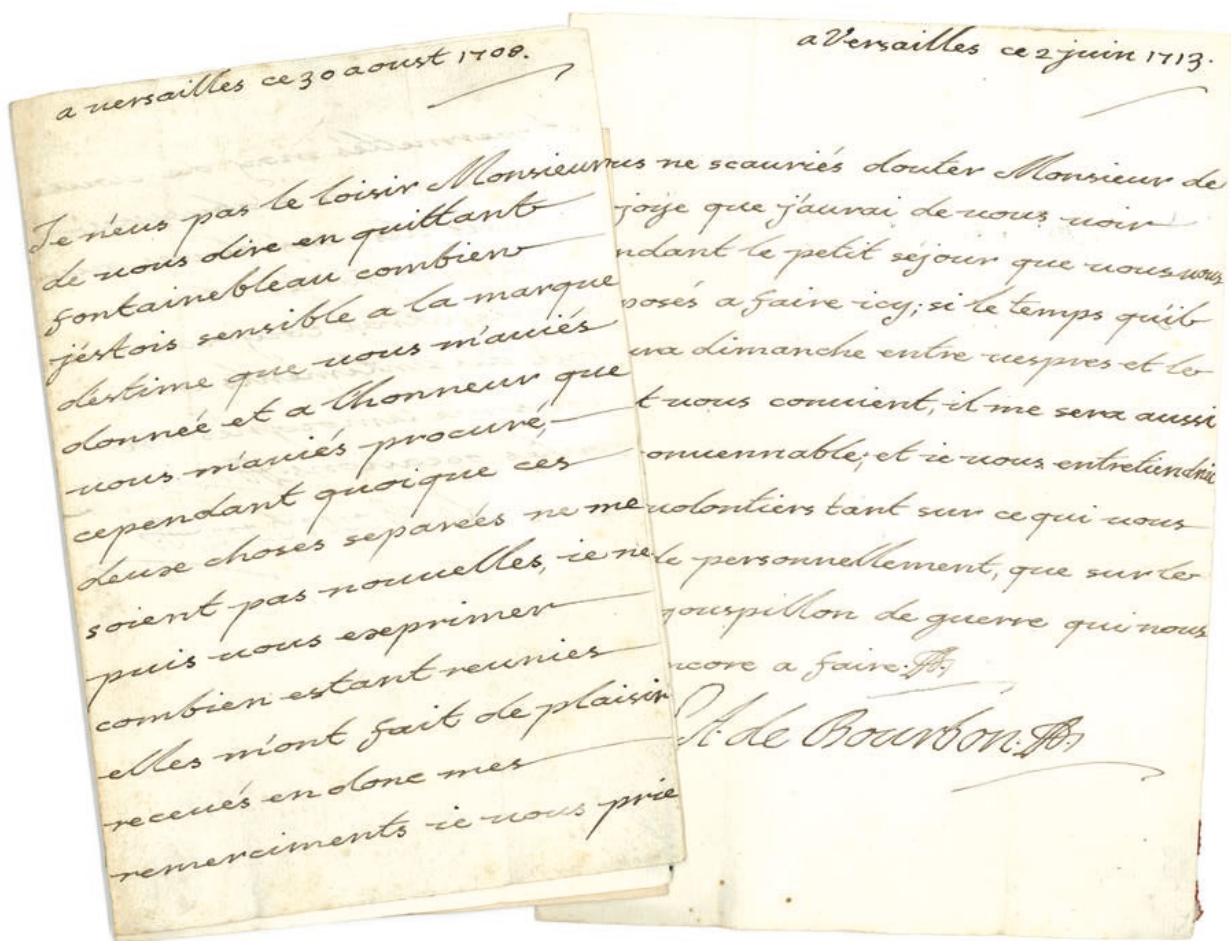 a versailles ce 30 aoust 1708.
Je n'eus pas le loisir Monsieur
de vous dire en quittant
fontainebleau combien
j'estois sensible a la marque
d'estime que vous m'aviés
donnée et a l'honneur que
vous m'aviés procuré,
cependant quoique ces
deux choses separées ne me
soient pas nouvelles, ie ne
puis vous exprimer
combien estant reunies
elles m'ont fait de plaisir
receués en donc mes
remerciments ie vous prie
a Versailles ce 2 juin 1713.
us ne scauriés douter Monsieur de
joÿe que j'aurai de vous voir
ndant le petit séjour que vous vous
posés a faire icy; si le temps qu'il
ura dimanche entre vespres et le
t vous convient, il me sera aussi
onvennable; et ie vous entretiendrai
volontiers tant sur ce qui vous
de personnellement, que sur le
gouspillon de guerre qui nous
ncore a faire.
A. de Bourbon.